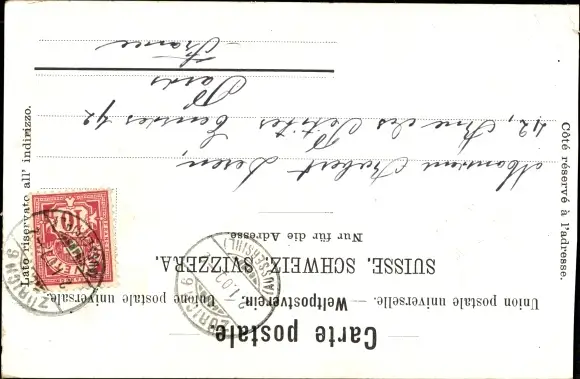 Carte postale.
Union postale universelle. — Weltpostverein. — Unione postale universale.
SUISSE. SCHWEIZ. SVIZZERA.
Nur für die Adresse.
Côté réservé à l'adresse.
Lato riservato all' indirizzo.
ZÜRICH 9
(AUSSERSIHL)
10
Monsieur Robert
42, Rue des Petites 42
Paris
France